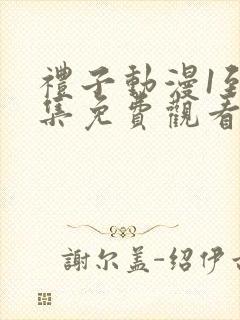 禮子動漫1至
集免費觀看
謝尔盖-紹伊古